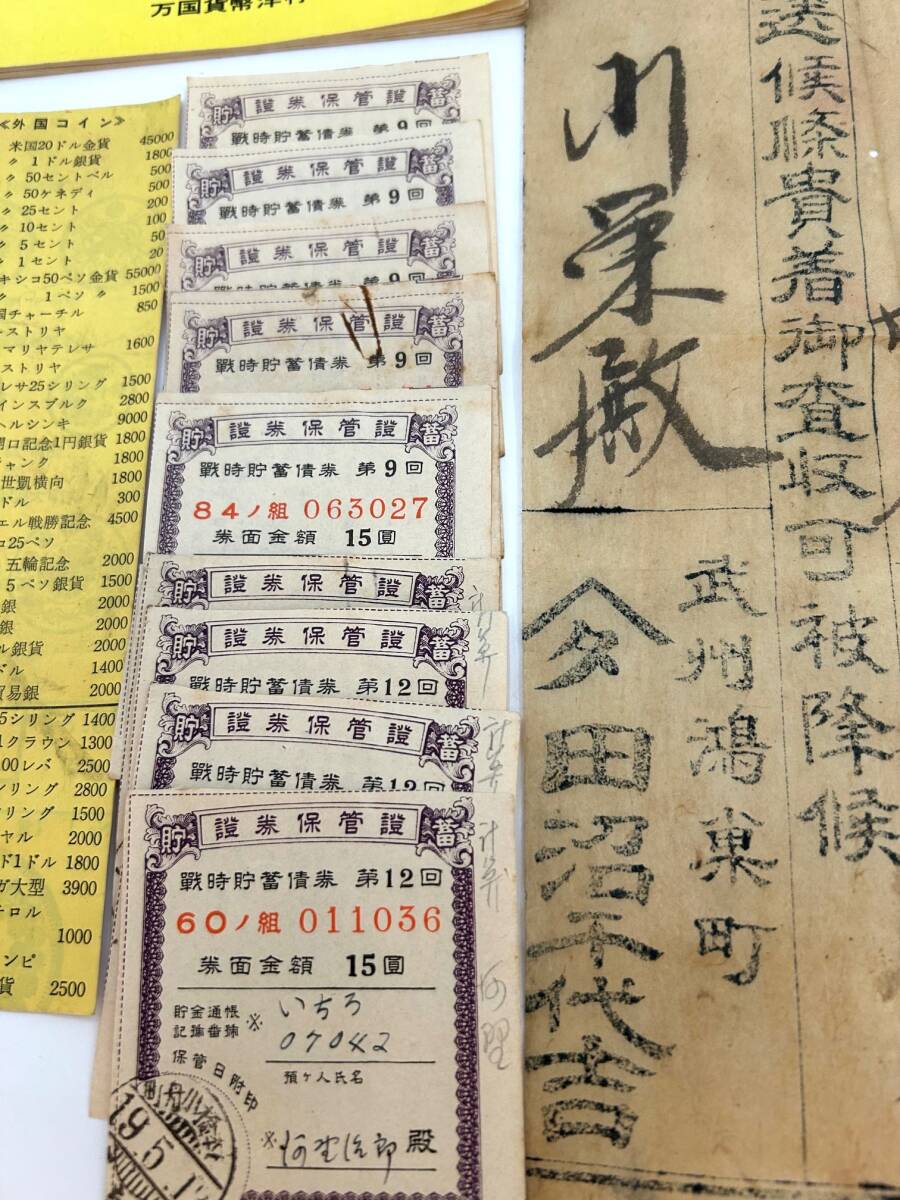 万国貨幣洋行
≪外国コイン≫
米国20ドル金貨 45000
〃 1ドル銀貨 1800
〃 50セントベル 500
〃 50ケネディ 500
〃 25セント 200
〃 10セント 100
〃 5セント 50
〃 1セント 20
キシコ50ペソ金貨 55000
〃 1ペソ 〃 1500
国チャーチル 850
ーストリヤ
マリヤテレサ 1600
ストリヤ
レサ25シリング 1500
インスブルク 2800
ヘルシンキ 9000
開口記念1円銀貨 1800
チャンク 1800
世凱横向 1800
ドル 300
エル戦勝記念 4500
コ25ペソ
五輪記念 2000
5ペソ銀貨 1500
銀 2000
銀 2000
ル銀貨 2000
ドル 1400
貿易銀 2000
5シリング 1400
1クラウン 1300
00レバ 2500
シリング 2800
リング 1500
ヤル 2000
ド1ドル 1800
ガ大型 3900
チロル
1000
ンピ
貨 2500
貯 證券保管證 蓄
戰時貯蓄債券 第9回
貯 證券保管證 蓄
戰時貯蓄債券 第9回
貯 證券保管證 蓄
戰時貯蓄債券 第9回
貯 證券保管證 蓄
戰時貯蓄債券 第9回
貯 證券保管證 蓄
戰時貯蓄債券 第9回
84ノ組 063027
券面金額 15圓
貯 證券保管證 蓄
貯 證券保管證 蓄
戰時貯蓄債券 第12回
貯 證券保管證 蓄
戰時貯蓄債券 第12回
貯 證券保管證 蓄
戰時貯蓄債券 第12回
60ノ組 011036
券面金額 15圓
貯金通帳
記號番號
※ いちろ
07042
保管日附印
預ケ人氏名
※ 治郎 殿
19.5.1
計算
送候條貴着御査収可被降候
川栄殿
武州鴻巣町
田沼千代吉